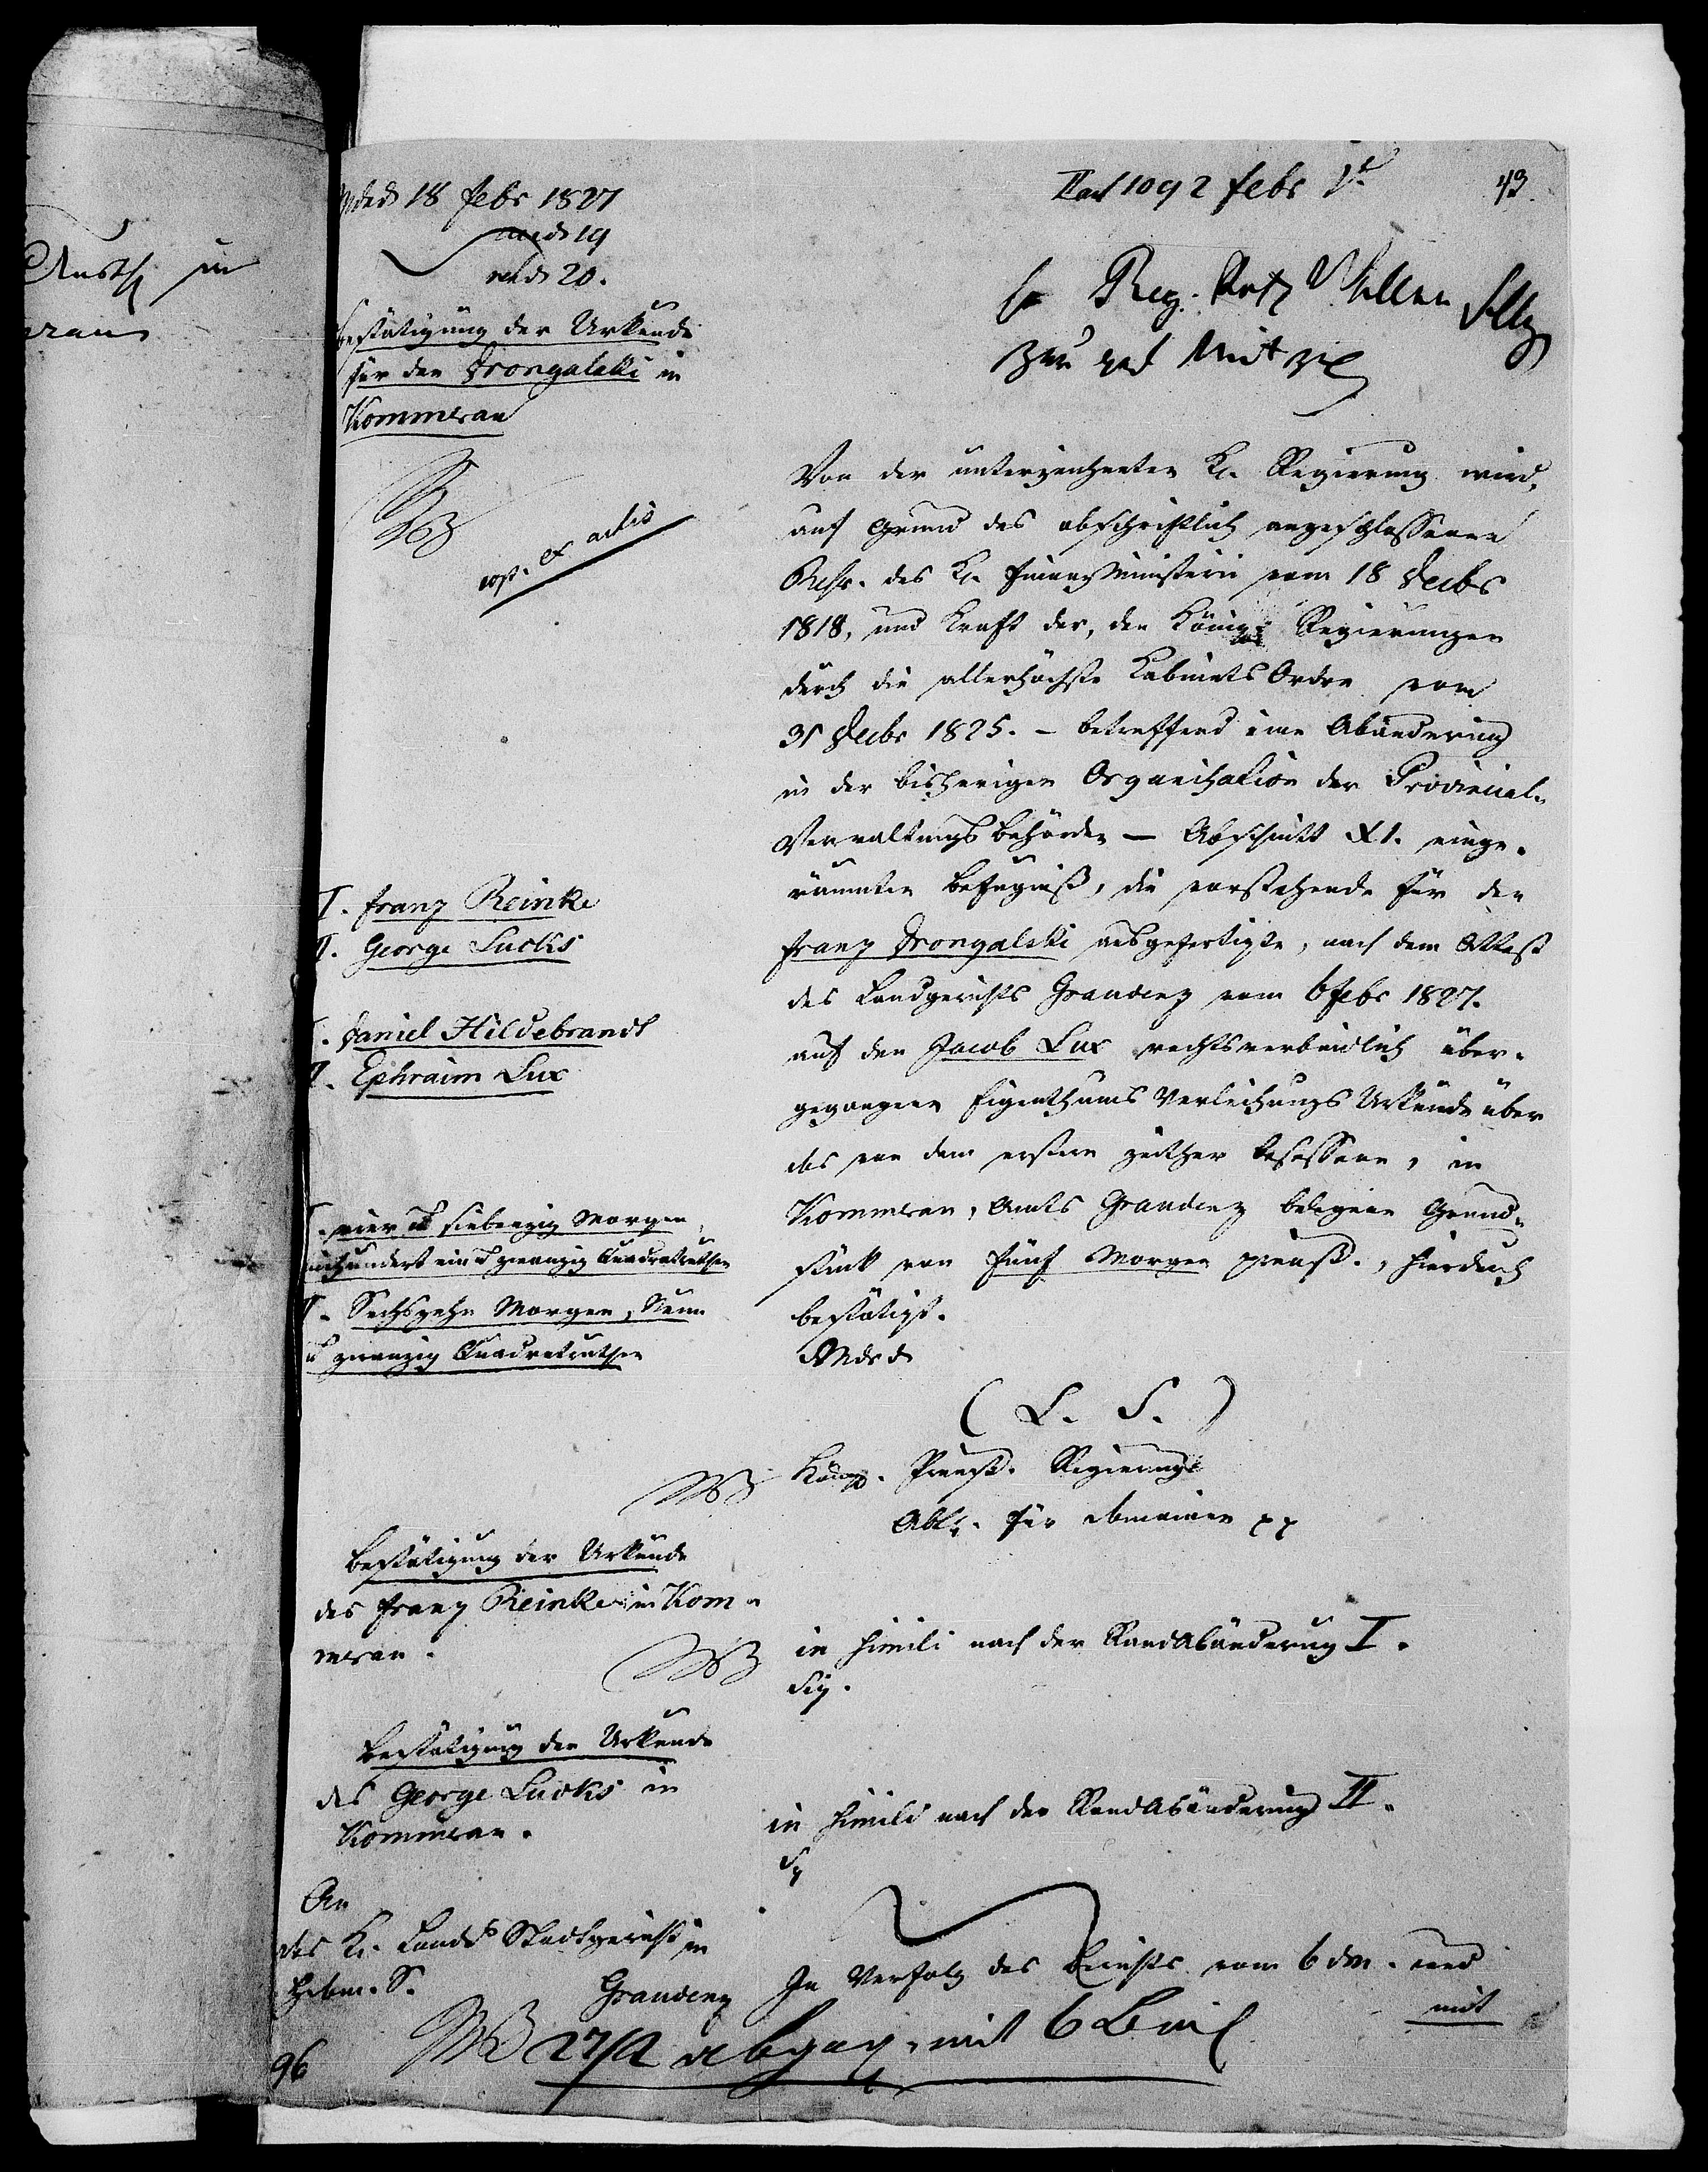 Mdrd 18 Febr 1827
mund 19
red 20.
Bestätigung der Urkunde
für den Drongalski in
Kommerau
cop. ex actis
I. Franz Reinke
II. George Lucks
I. Daniel Hildebrandt
II. Ephraim Lux
I. vier u siebenzig Morgen,
einhundert ein u zwanzig Quadratruthen
II. Sechszehn Morgen, Neun
u zwanzig Quadratruthen
Bestätigung der Urkunde
des Franz Reinke in Kom-
merau.
Bestätigung der Urkunde
des George Lucks in
Kommerau.
An
das K. Land u Stadtgericht in
Graudenz
96
1092 Febr
43.
H Reg. Rath
zur gef Mitz
Von der unterzeichneten K. Regierung wird,
auf Grund des abschriftlich angeschlossenen
Rescr. des K. Finanz Ministerii vom 18 Decbr
1818, und Kraft der, den Königl Regierungen
durch die allerhöchste Kabinets Ordre vom
31 Decbr 1825. – betreffend eine Abänderung
in der bisherigen Organisation der Provincial-
Verwaltungs Behörden – Abschnitt XI. einge-
räumten Befugniß, die vorstehende für den
Franz Drongalski ausgefertigte, nach dem Attest
des Landgerichts Graudenz vom 6 Febr 1827.
auf den Jacob Lux rechtsverbindlich über-
gegangene Eigenthums Verleihungs Urkunde über
das von dem erstern zeither besessene, in
Kommerau, Amts Graudenz belegene Grund-
stück von fünf Morgen preuß., hierdurch
bestätigt.
Mdrd
(L. S.)
Königl. Preuß. Regierung
Abth. für Domainen pp
in simili nach der Randabänderung I.
in simili nach der Randabänderung II.
In Verfolg des Berichts vom 6 dM. und
mit
27/2 abgeg. mit 6 Beil